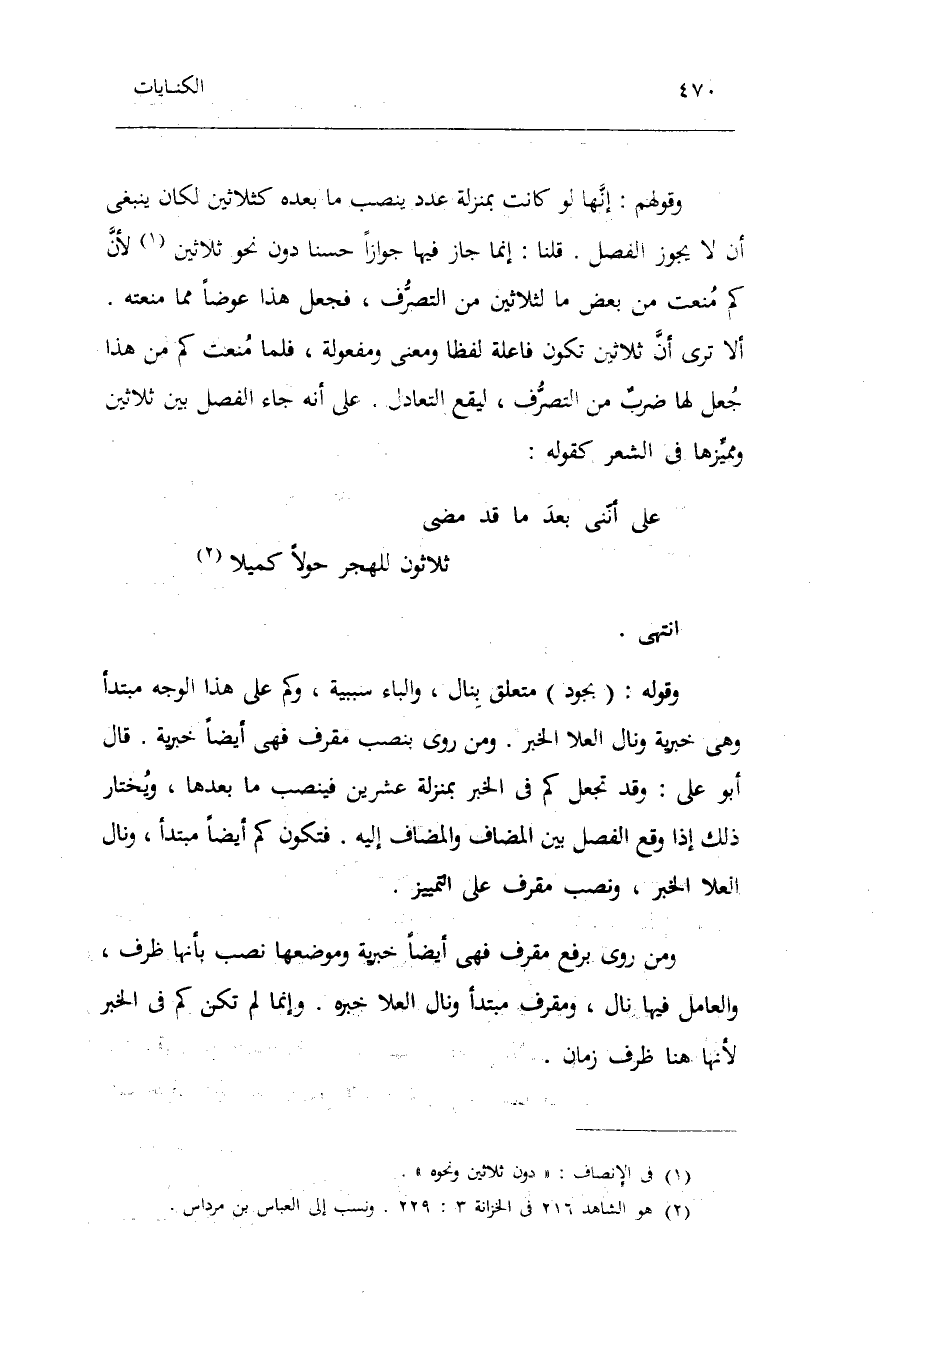 ٤٧٠ الكنايات
وقولهم : إنَّها لو كانت بمنزلة عدد ينصب ما بعده كثلاثين لكان ينبغى
أن لا يجوز الفصل . قلنا : إنما جاز فيها جوازاً حسنا دون نحو ثلاثين (١) لأنَّ
كم مُنعت من بعض ما لثلاثين من التصرُّف ، فجعل هذا عوضاً مما منعته .
ألا ترى أنَّ ثلاثين تكون فاعلة لفظا ومعنى ومفعولة ، فلما مُنعت كم من هذا
جُعل لها ضربٌ من التصرُّف ، ليقع التعادل . على أنه جاء الفصل بين ثلاثين
ومميِّزها فى الشعر كقوله :
على أنّنى بعدَ ما قد مضى
ثلاثون للهجر حولاً كميلا (٢)
انتهى .
وقوله : ( بجود ) متعلق بِنال ، والباء سببية ، وكم على هذا الوجه مبتدأ
وهى خبرية ونال العلا الخبر . ومن روى بنصب مقرف فهى أيضاً خبرية . قال
أبو على : وقد تجعل كم فى الخبر بمنزلة عشرين فينصب ما بعدها ، ويُختار
ذلك إذا وقع الفصل بين المضاف والمضاف إليه . فتكون كم أيضاً مبتدأ ، ونال
العلا الخبر ، ونصب مقرف على التمييز .
ومن روى برفع مقرف فهى أيضاً خبرية وموضعها نصب بأنها ظرف ،
والعامل فيها نال ، ومقرف مبتدأ ونال العلا خبره . وإنما لم تكن كم فى الخبر
لأنها هنا ظرف زمان .
(١) فى الإنصاف : « دون ثلاثين ونحوه » .
(٢) هو الشاهد ٢١٦ فى الخزانة ٣ : ٢٢٩ . ونسب إلى العباس بن مرداس .